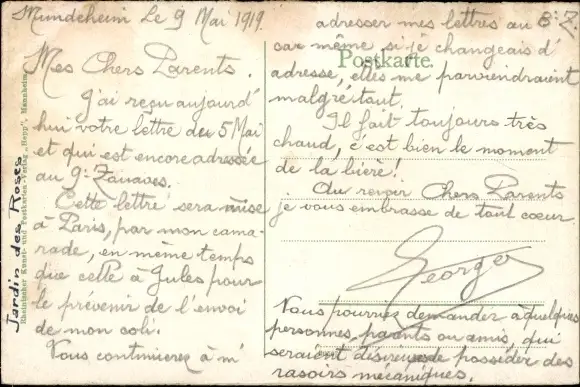 Mundeheim Le 9 Mai 1919.
Mes Chers Parents.
J'ai reçu aujourd'
hui votre lettre du 5 Mai
et qui est encore adressée
au 9e Zouaves.
Cette lettre sera mise
à Paris, par mon cama-
rade, en même temps
que celle à Jules pour
le prévenir de l'envoi
de mon coli.
Vous continuerez à m'
adresser mes lettres au 8e Z.
car même si je changeais d'
adresse, elles me parviendraient
malgré tout.
Il fait toujours très
chaud, c'est bien le moment
de la bière!
Au revoir Chers Parents
je vous embrasse de tout coeur.
Georges
Vous pourrez demander à quelques
personnes, parents ou amis, qui
seraient désireuses de posséder des
rasoirs mécaniques.
Postkarte.
Jardin des Roses
Rheinischer Kunst- und Postkarten-Verlag „Hepp", Mannheim.